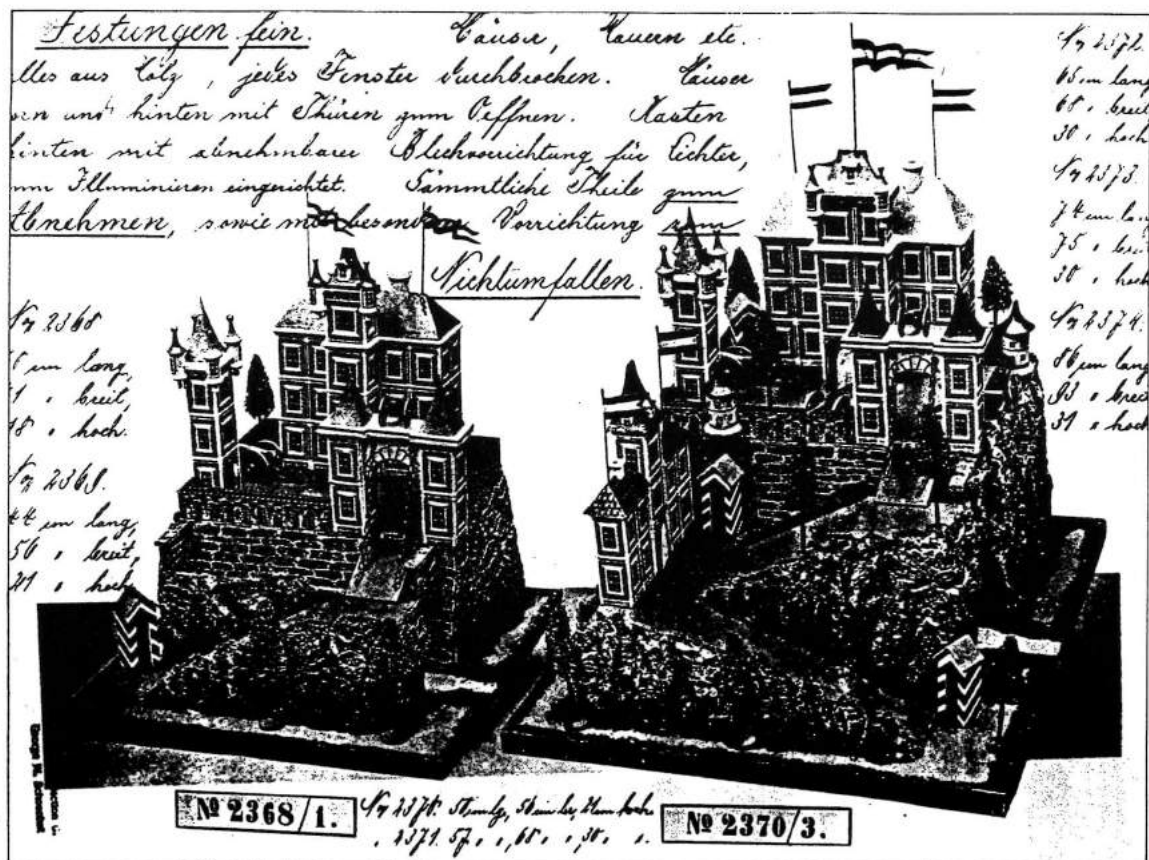 Festungen fein. Häuser, Mauern etc.
lles aus Holz, jedes Fenster durchbrochen. Häuser
orn und hinten mit Thüren zum Oeffnen. Kasten
hinten mit abnehmbarer Blechvorrichtung für Lichter,
um Illuminieren eingerichtet. Sämmtliche Theile zum
Abnehmen, sowie mit besonderer Vorrichtung zum
Nichtumfallen.
No 2368
cm lang,
1 " breit,
18 " hoch.
No 2369.
44 cm lang,
50 " breit,
21 " hoch
No 2372.
65 cm lang
68 " breit
30 " hoch
No 2373.
74 cm lang
75 " breit
30 " hoch
No 2374.
86 cm lang
93 " breit
31 " hoch
№ 2368/1.
No 2370. 51 cm lg, 50 cm br, 21 cm hoch
" 2371. 57 " ", 68 " ", 30 " ".
№ 2370/3.